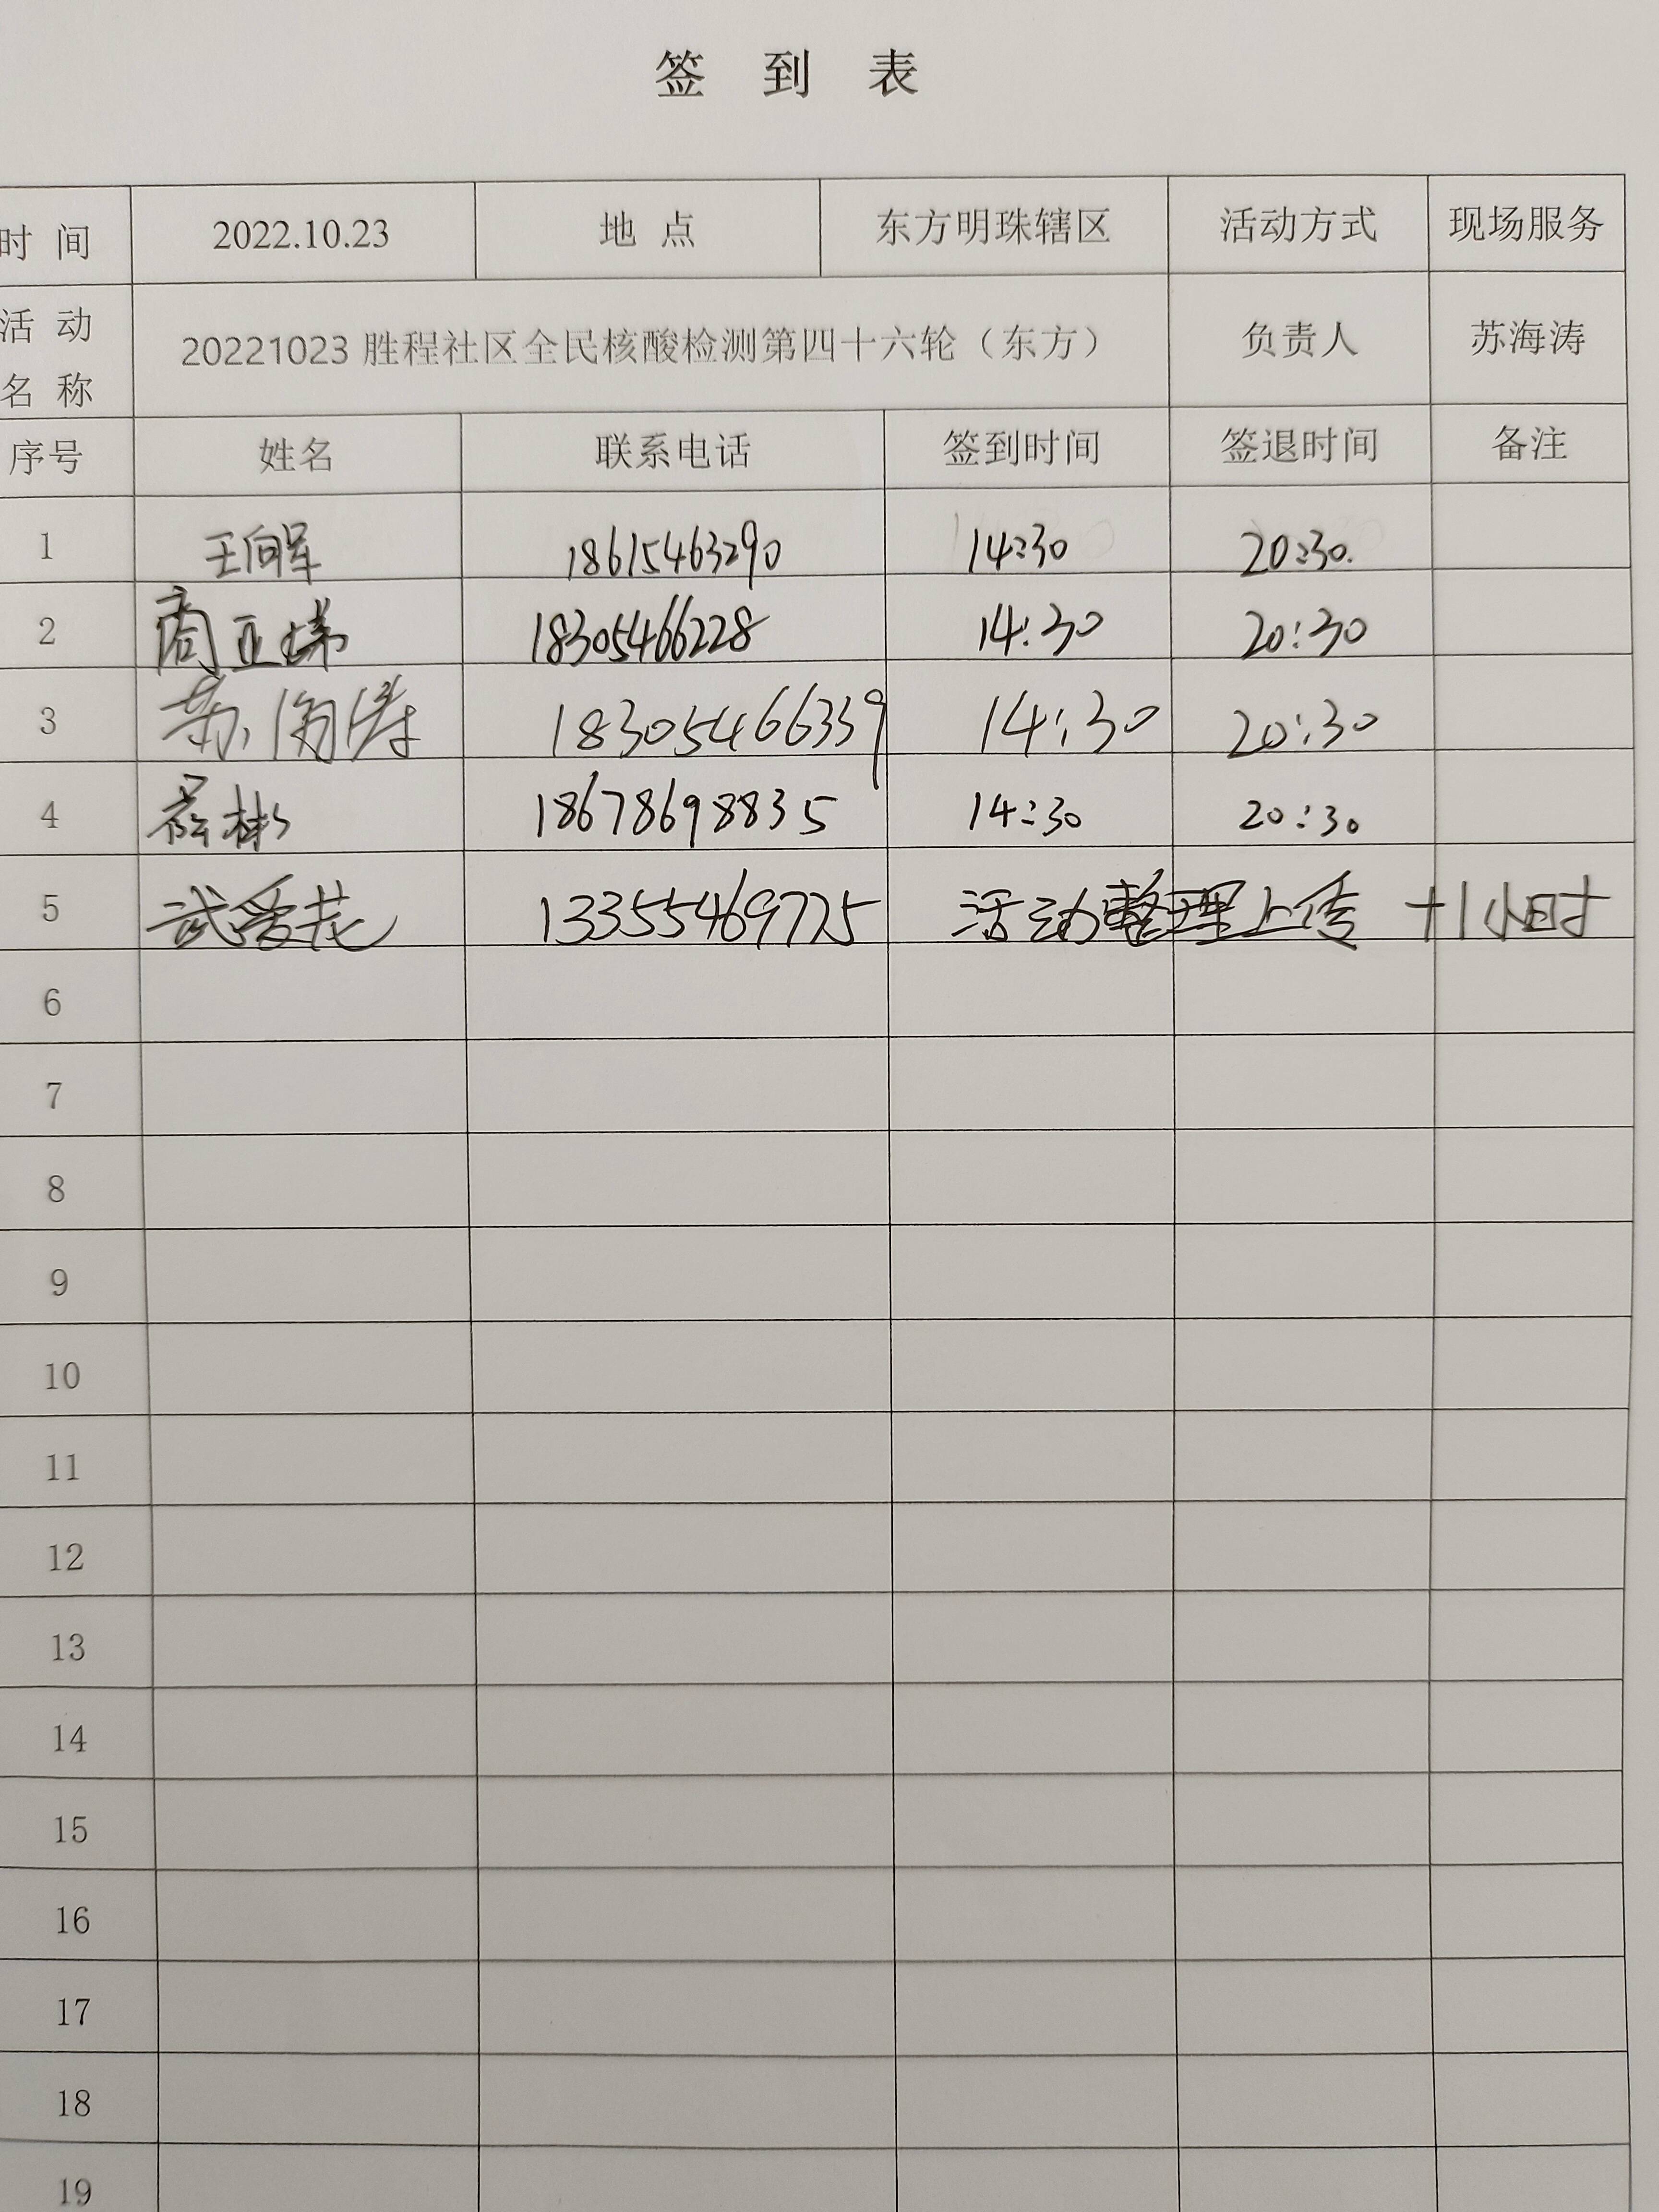 签 到 表
时 间 2022.10.23 地 点 东方明珠辖区 活动方式 现场服务
活 动 名 称 20221023胜程社区全民核酸检测第四十六轮（东方） 负责人 苏海涛
序号 姓名 联系电话 签到时间 签退时间 备注
1 王向军 18615463290 14:30 20:30.
2 商亚娣 18305466228 14:30 20:30
3 苏海涛 18305466339 14:30 20:30
4 彬 18678698835 14:30 20:30
5 武爱花 13355469775 活动整理上传 +1小时
6
7
8
9
10
11
12
13
14
15
16
17
18
19